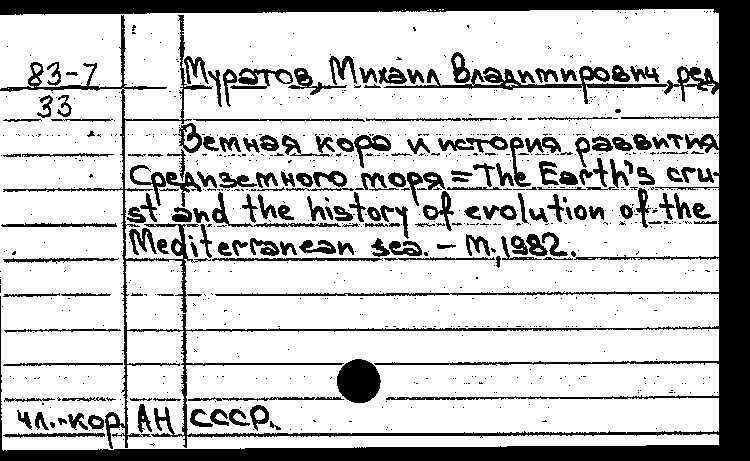 83-7
33
Муратов, Михаил Владимирович, ред,
Земная кора и история развития
Средиземного моря = The Earth's cru-
st and the history of evolution of the
Mediterranean sea. - М., 1982.
чл.-кор. АН СССР.